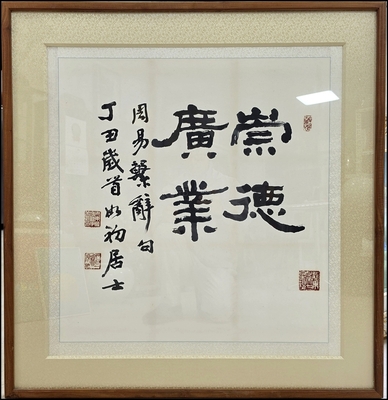 崇德
廣業
周易繫辭句
丁丑歲首如初居士